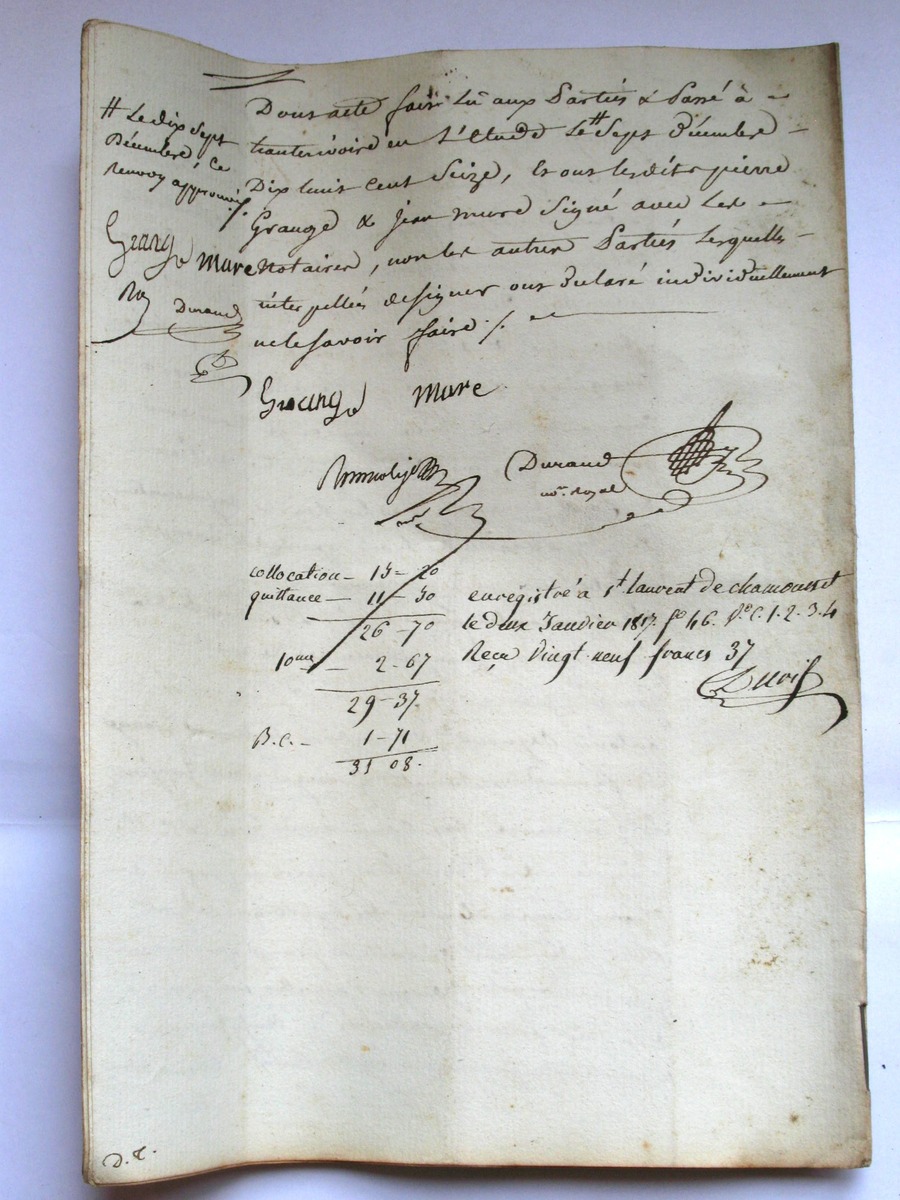 Dont acte fait Lu aux Parties & Passé à
hauterivoire en L'Etude Le # Sept décembre
Dix huit cent Seize, Et ont lesdits pierre
Grange & jean mure Signé avec Les
Notaires, non les autres Parties Lesquelles
interpellées de signer ont déclaré individuellement
ne le savoir faire ./.
# Le dix Sept
Décembre Ce
Renvoy approuvé ./.
Grange mure
Durand
Grange mure
Durand
no.re Royal
collocation – 15 – 20
quittance – 11 – 50
26 – 70
10me – 2 – 67
29 – 37
B.C. – 1 – 71
31 08.
enregistré à St. laurent de chamousset
le deux Janvier 1817 fo 46. Vo C. 1. 2. 3. 4
Reçu Vingt-neuf francs 37
D. C.